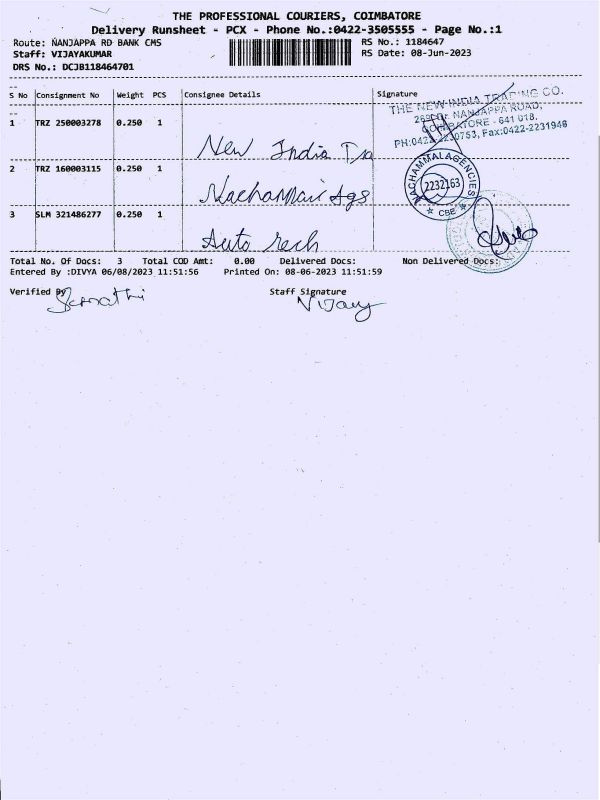 THE PROFESSIONAL COURIERS, COIMBATORE
Delivery Runsheet - PCX - Phone No.:0422-3505555 - Page No.:1
Route: NANJAPPA RD BANK CMS
RS No.: 1184647
Staff: VIJAYAKUMAR
RS Date: 08-Jun-2023
DRS No.: DCJB118464701
S No Consignment No Weight PCS Consignee Details Signature
1 TRZ 250003278 0.250 1 New India
THE NEW INDIA TRADING CO.
NANJAPPA ROAD,
COIMBATORE - 641 018.
Fax:0422-2231946
2 TRZ 160003115 0.250 1 Nachammai Ags
NACHAMMAL AGENCIES
2232163
★ CBE ★
3 SLM 321486277 0.250 1 Auto Tech
Total No. Of Docs: 3 Total COD Amt: 0.00 Delivered Docs: Non Delivered Docs:
Entered By :DIVYA 06/08/2023 11:51:56 Printed On: 08-06-2023 11:51:59
Verified By
Staff Signature
Vijay